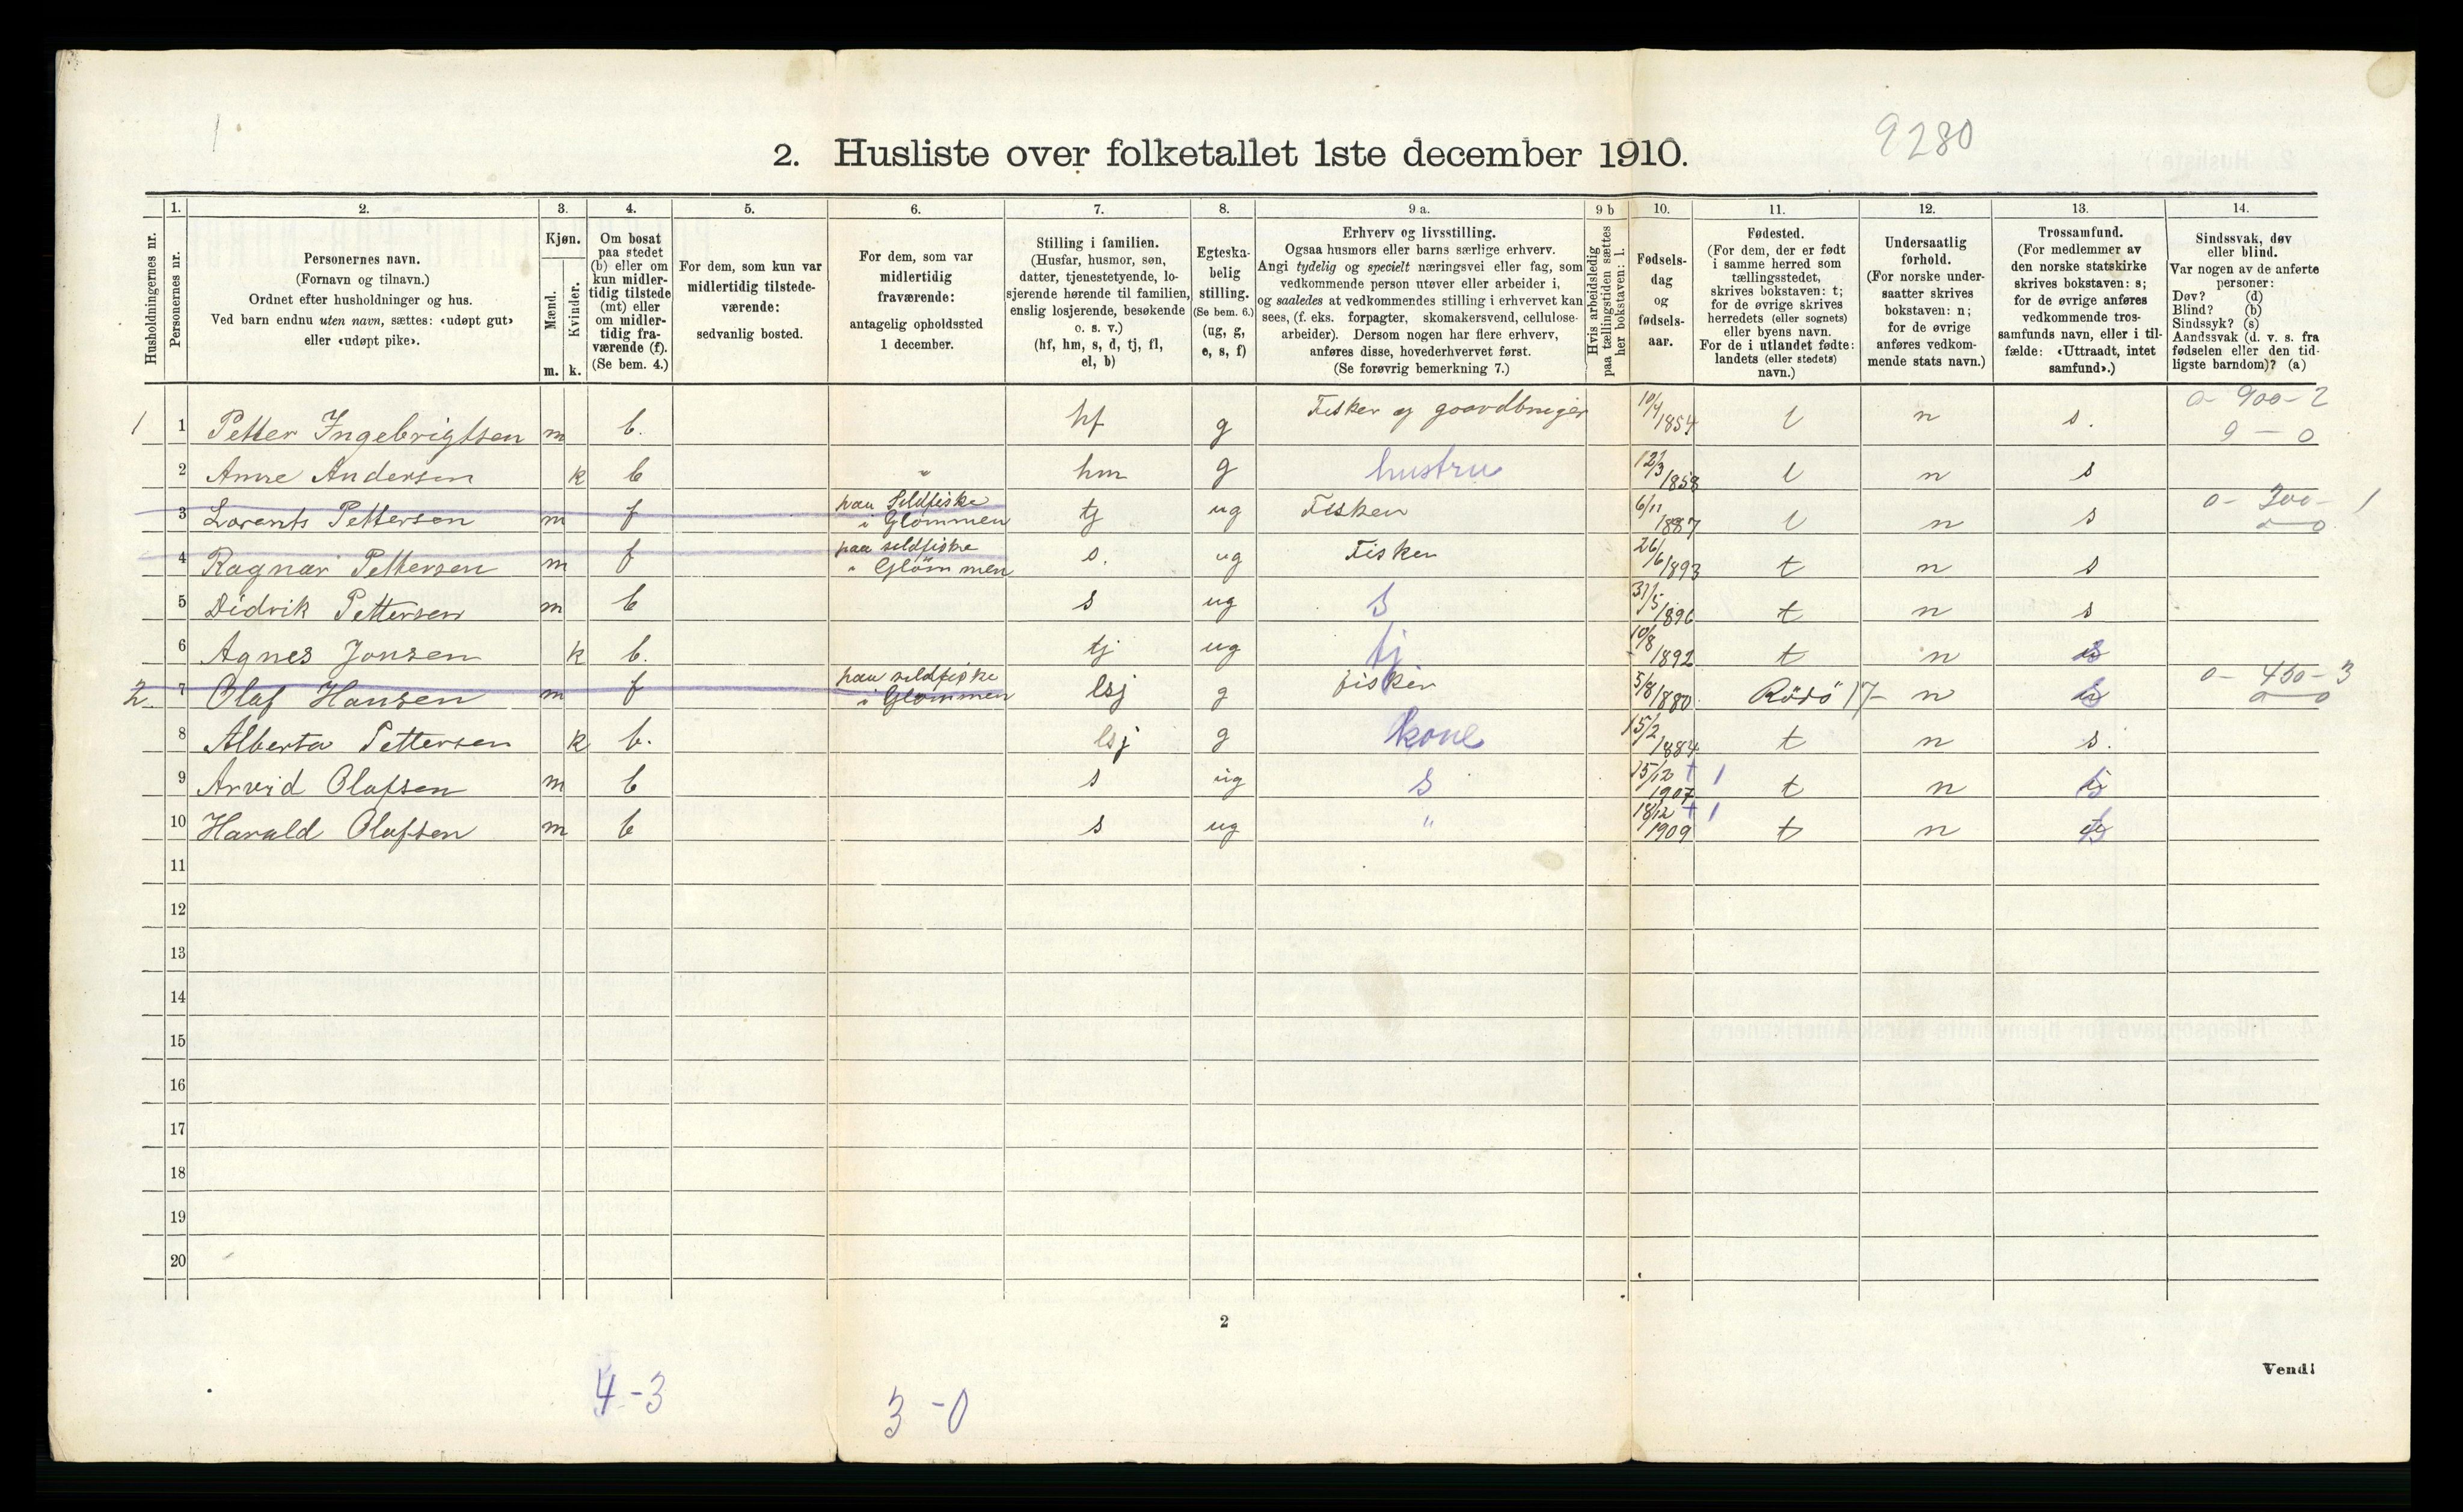 1
2. Husliste over folketallet 1ste december 1910.
9280
Husholdningernes nr.
1. Personernes nr.
2. Personernes navn.
(Fornavn og tilnavn.)
Ordnet efter husholdninger og hus.
Ved barn endnu uten navn, sættes: «udøpt gut»
eller «udøpt pike».
3. Kjøn.
Mænd. Kvinder.
m. k.
4. Om bosat
paa stedet
(b) eller om
kun midler-
tidig tilstede
(mt) eller
om midler-
tidig fra-
værende (f).
(Se bem. 4.)
5. For dem, som kun var
midlertidig tilstede-
værende:
sedvanlig bosted.
6. For dem, som var
midlertidig
fraværende:
antagelig opholdssted
1 december.
7. Stilling i familien.
(Husfar, husmor, søn,
datter, tjenestetyende, lo-
sjerende hørende til familien,
enslig losjerende, besøkende
o. s. v.)
(hf, hm, s, d, tj, fl,
el, b)
8. Egteska-
belig
stilling.
(Se bem. 6.)
(ug, g,
e, s, f)
9 a. Erhverv og livsstilling.
Ogsaa husmors eller barns særlige erhverv.
Angi tydelig og specielt næringsvei eller fag, som
vedkommende person utøver eller arbeider i,
og saaledes at vedkommendes stilling i erhvervet kan
sees, (f. eks. forpagter, skomakersvend, cellulose-
arbeider). Dersom nogen har flere erhverv,
anføres disse, hovederhvervet først.
(Se forøvrig bemerkning 7.)
9 b Hvis arbeidsledig
paa tællingstiden sættes
her bokstaven: l.
10. Fødsels-
dag
og
fødsels-
aar.
11. Fødested.
(For dem, der er født
i samme herred som
tællingsstedet,
skrives bokstaven: t;
for de øvrige skrives
herredets (eller sognets)
eller byens navn.
For de i utlandet fødte:
landets (eller stedets)
navn.)
12. Undersaatlig
forhold.
(For norske under-
saatter skrives
bokstaven: n;
for de øvrige
anføres vedkom-
mende stats navn.)
13. Trossamfund.
(For medlemmer av
den norske statskirke
skrives bokstaven: s;
for de øvrige anføres
vedkommende tros-
samfunds navn, eller i til-
fælde: «Uttraadt, intet
samfund».)
14. Sindssvak, døv
eller blind.
Var nogen av de anførte
personer:
Døv? (d)
Blind? (b)
Sindssyk? (s)
Aandssvak (d. v. s. fra
fødselen eller den tid-
ligste barndom)? (a)
1 1 Petter Ingebrigtsen m b. hf g Fisker og gaardbruger 10/4 1854 t n s. 0-900-2 9-0
2 Anne Andersen k b " hm g hustru 12/3 1858 t n s
3 Lorents Pettersen m f paa Sildfiske i Glommen tj ug Fisker 6/11 1887 t n s 0-300-1 0-0
4 Ragnar Pettersen m f paa sildfiske i Glommen s. ug Fisker 26/6 1893 t n s
5 Didrik Pettersen m b s ug s 31/5 1896 t n s
6 Agnes Jonsen k b. tj ug tj 10/8 1892 t n s
2. 7 Olaf Hansen m f paa sildfiske i Glommen lsj g fisker 5/8 1880 Rödö 17 n s 0-450-3 0-0
8 Alberta Pettersen k b. lsj g kone 15/2 1884 t n s.
9 Arvid Olafsen m b s ug s 15/12 1907 t 1 t n s
10 Harald Olafsen m b s ug " 18/12 1909 t 1 t n s
11
12
13
14
15
16
17
18
19
20
2
Vend!
4-3
3-0